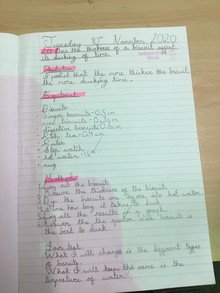 Thursday 19th November 2020
Does the thickness of a biscuit affect
its dunking of time.
Independent
Work
Prediction
I predict that the more thicker the biscuit
the more dunking time.
Equipment
Biscuits
Ginger biscuits = 0.5cm
biscuits = 0.3cm
digestive biscuits = 0.6cm
0.4cm
Ruler
Stop watch
hot water
mug
Method
1. Lay out the biscuit
2. Measure the thickness of the biscuit
3. Dip the biscuits one by one in hot water
4. Time how long it takes to dunk
5. Log all the results in a graph.
6. Answer the question. Which biscuit is
the best to dunk
Fair test
What it will change is the different types
of biscuits.
What it will keep the same is the
temperature of water.